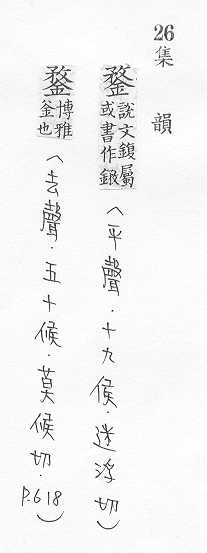 26 集韻
鍪 說文鍑屬
或書作
(平聲．十九侯．迷浮切)
鍪 博雅
釜也
(去聲．五十候．莫候切．P.618)